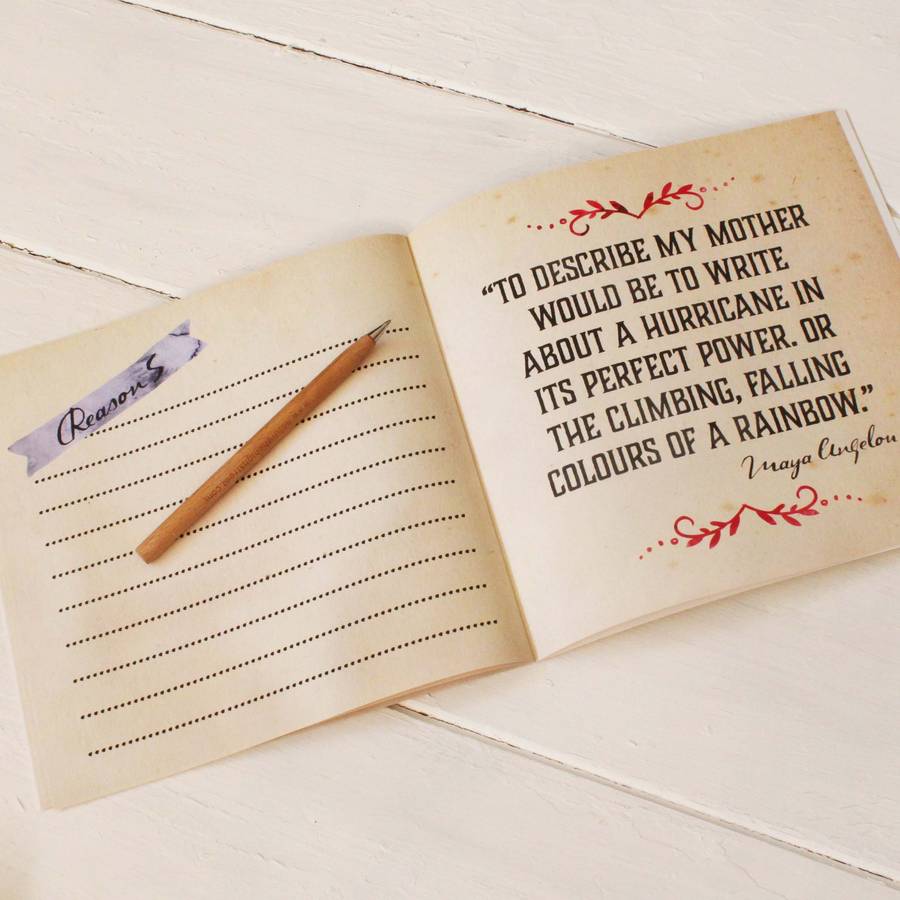 Reasons
"TO DESCRIBE MY MOTHER
WOULD BE TO WRITE
ABOUT A HURRICANE IN
ITS PERFECT POWER. OR
THE CLIMBING, FALLING
COLOURS OF A RAINBOW."
Maya Angelou